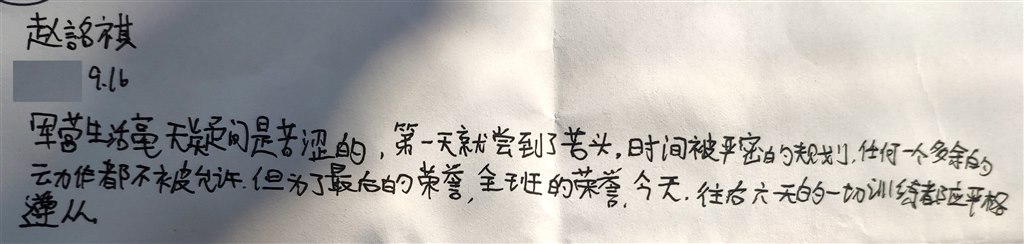 赵詺祺
9.16
军营生活毫无疑问是苦涩的，第一天就尝到了苦头，时间被严密的规划，任何一个多余的
动作都不被允许。但为了最后的荣誉，全班的荣誉，今天，往后六天的一切训练都应严格
遵从。